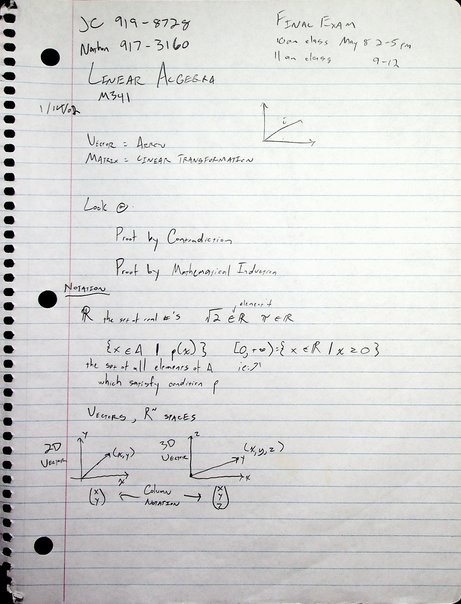 JC 919-8728
Nathan 917-3160
FINAL EXAM
10am class May 8 2-5pm
11am class 9-12
LINEAR ALGEBRA
M341
VECTOR = ARROW
MATRIX = LINEAR TRANSFORMATION
Look @
Proof by Contradiction
Proof by Mathematical Induction
NOTATION
element of
ℝ the set of real #'s √2 ∈ ℝ π ∈ ℝ
{x ∈ A | p(x)} [0, +∞) : {x ∈ ℝ | x ≥ 0}
the set of all elements of A
which satisfy condition p
VECTORS, Rⁿ SPACES
2D VECTOR y (x,y) x
3D VECTOR z (x,y,z) y x
(x y) ← COLUMN NOTATION → (x y z)